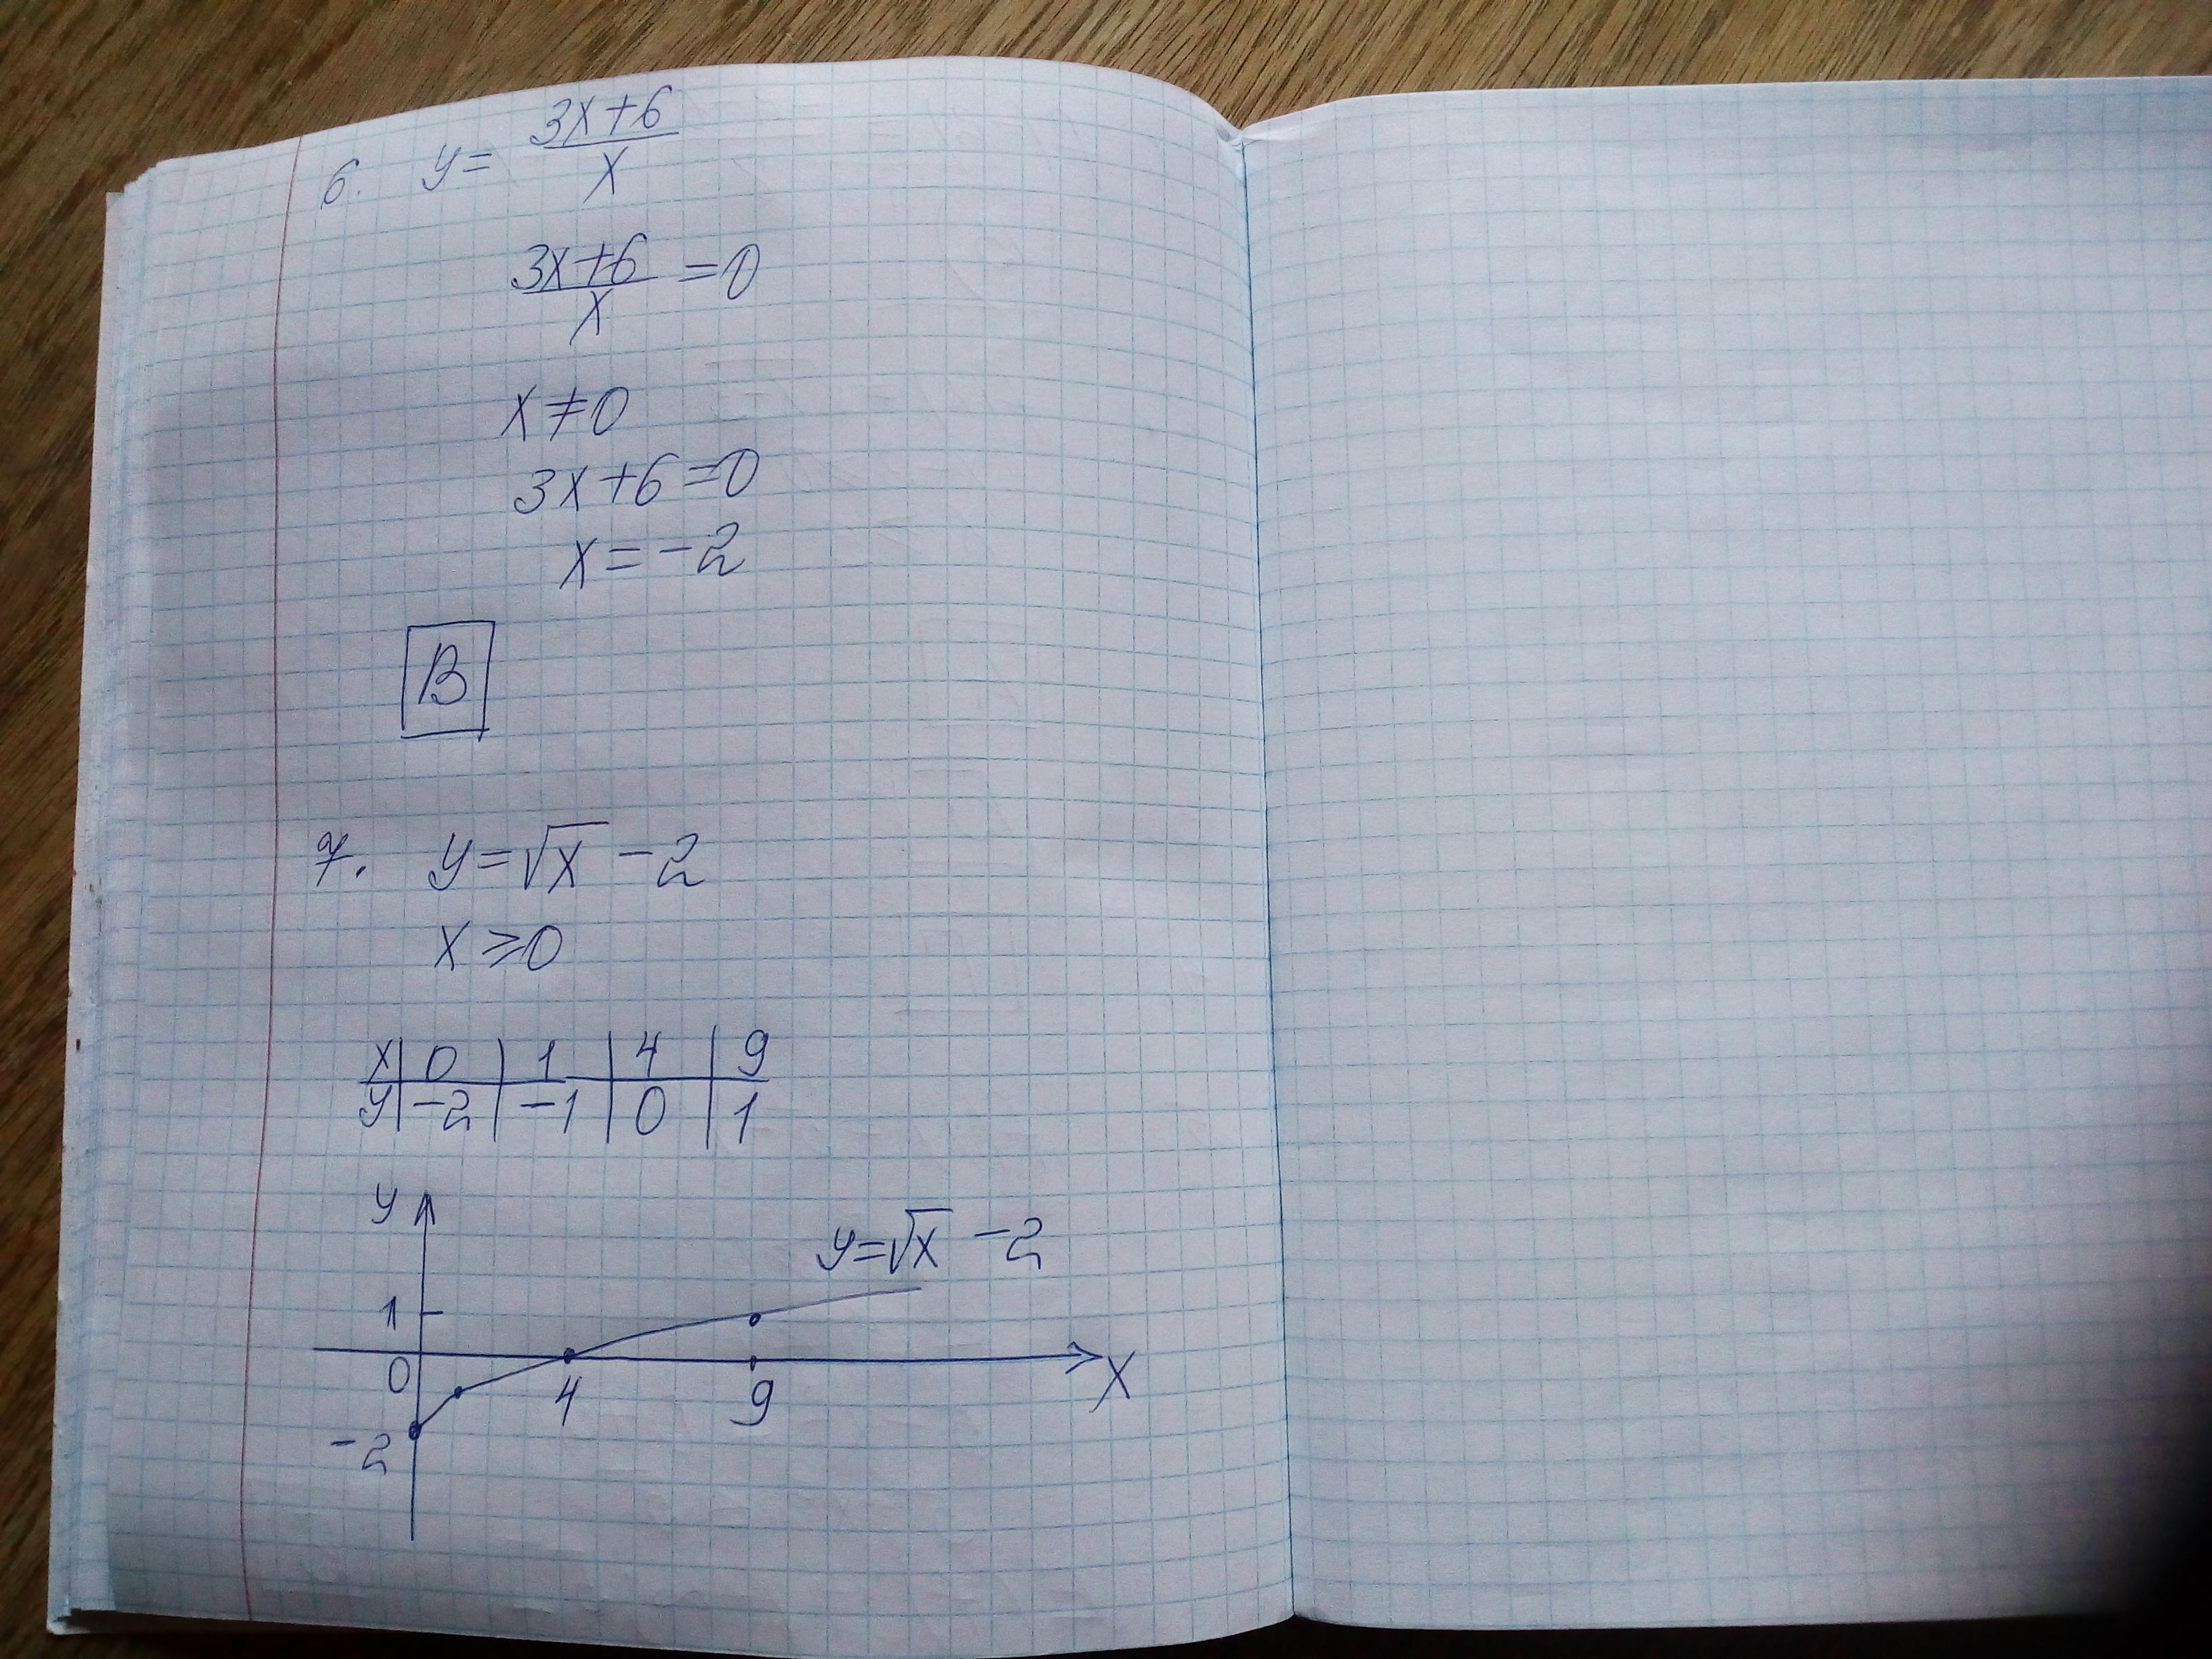 6. y = (3x+6)/x
(3x+6)/x = 0
x ≠ 0
3x + 6 = 0
x = -2
B
7. y = √x - 2
x ≥ 0
x | 0 | 1 | 4 | 9
y | -2 | -1 | 0 | 1
y
y = √x - 2
1
0
4
9
x
-2